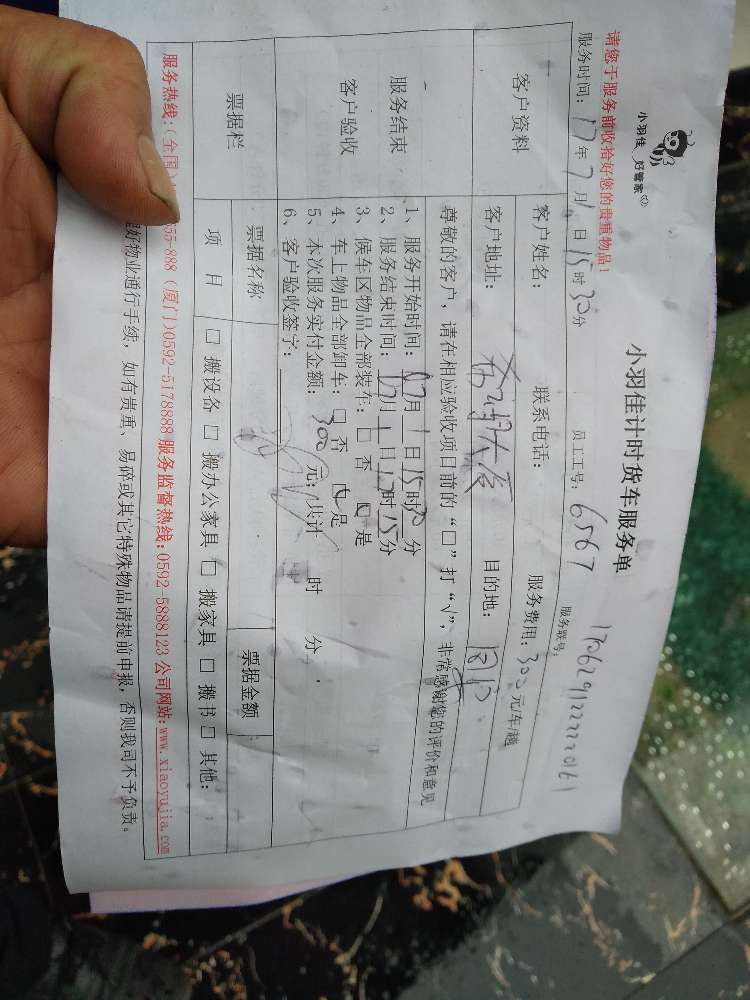 小羽佳 好管家
小羽佳计时货车服务单
请您于服务前收拾好您的贵重物品!
服务时间: 17年7月1日15时30分 员工工号: 6567 服务联号:
客户资料 客户姓名: 联系电话: 服务费用: 300元车/趟
客户地址: 大厦 目的地:
尊敬的客户,请在相应验收项目前的“□”打“√”,非常感谢您的评价和意见
服务结束
客户验收
1、服务开始时间: 07月1日15时30分
2、服务结束时间: 07月1日17时15分
3、候车区物品全部装车: □ 否 □ 是
4、车上物品全部卸车: □ 否 □ 是
5、本次服务实付金额: 300元; 共计 时 分.
6、客户验收签字:
票据栏 票据名称 票据金额
项 目 □ 搬设备 □ 搬办公家具 □ 搬家具 □ 搬书 □ 其他:
服务热线:(全国) 55-888 (厦门)0592-5178888 服务监督热线:0592-5888123 公司网站:www.xiaoyujia.com
好物业通行手续,如有贵重、易碎或其它特殊物品请提前申报,否则我司不予负责。